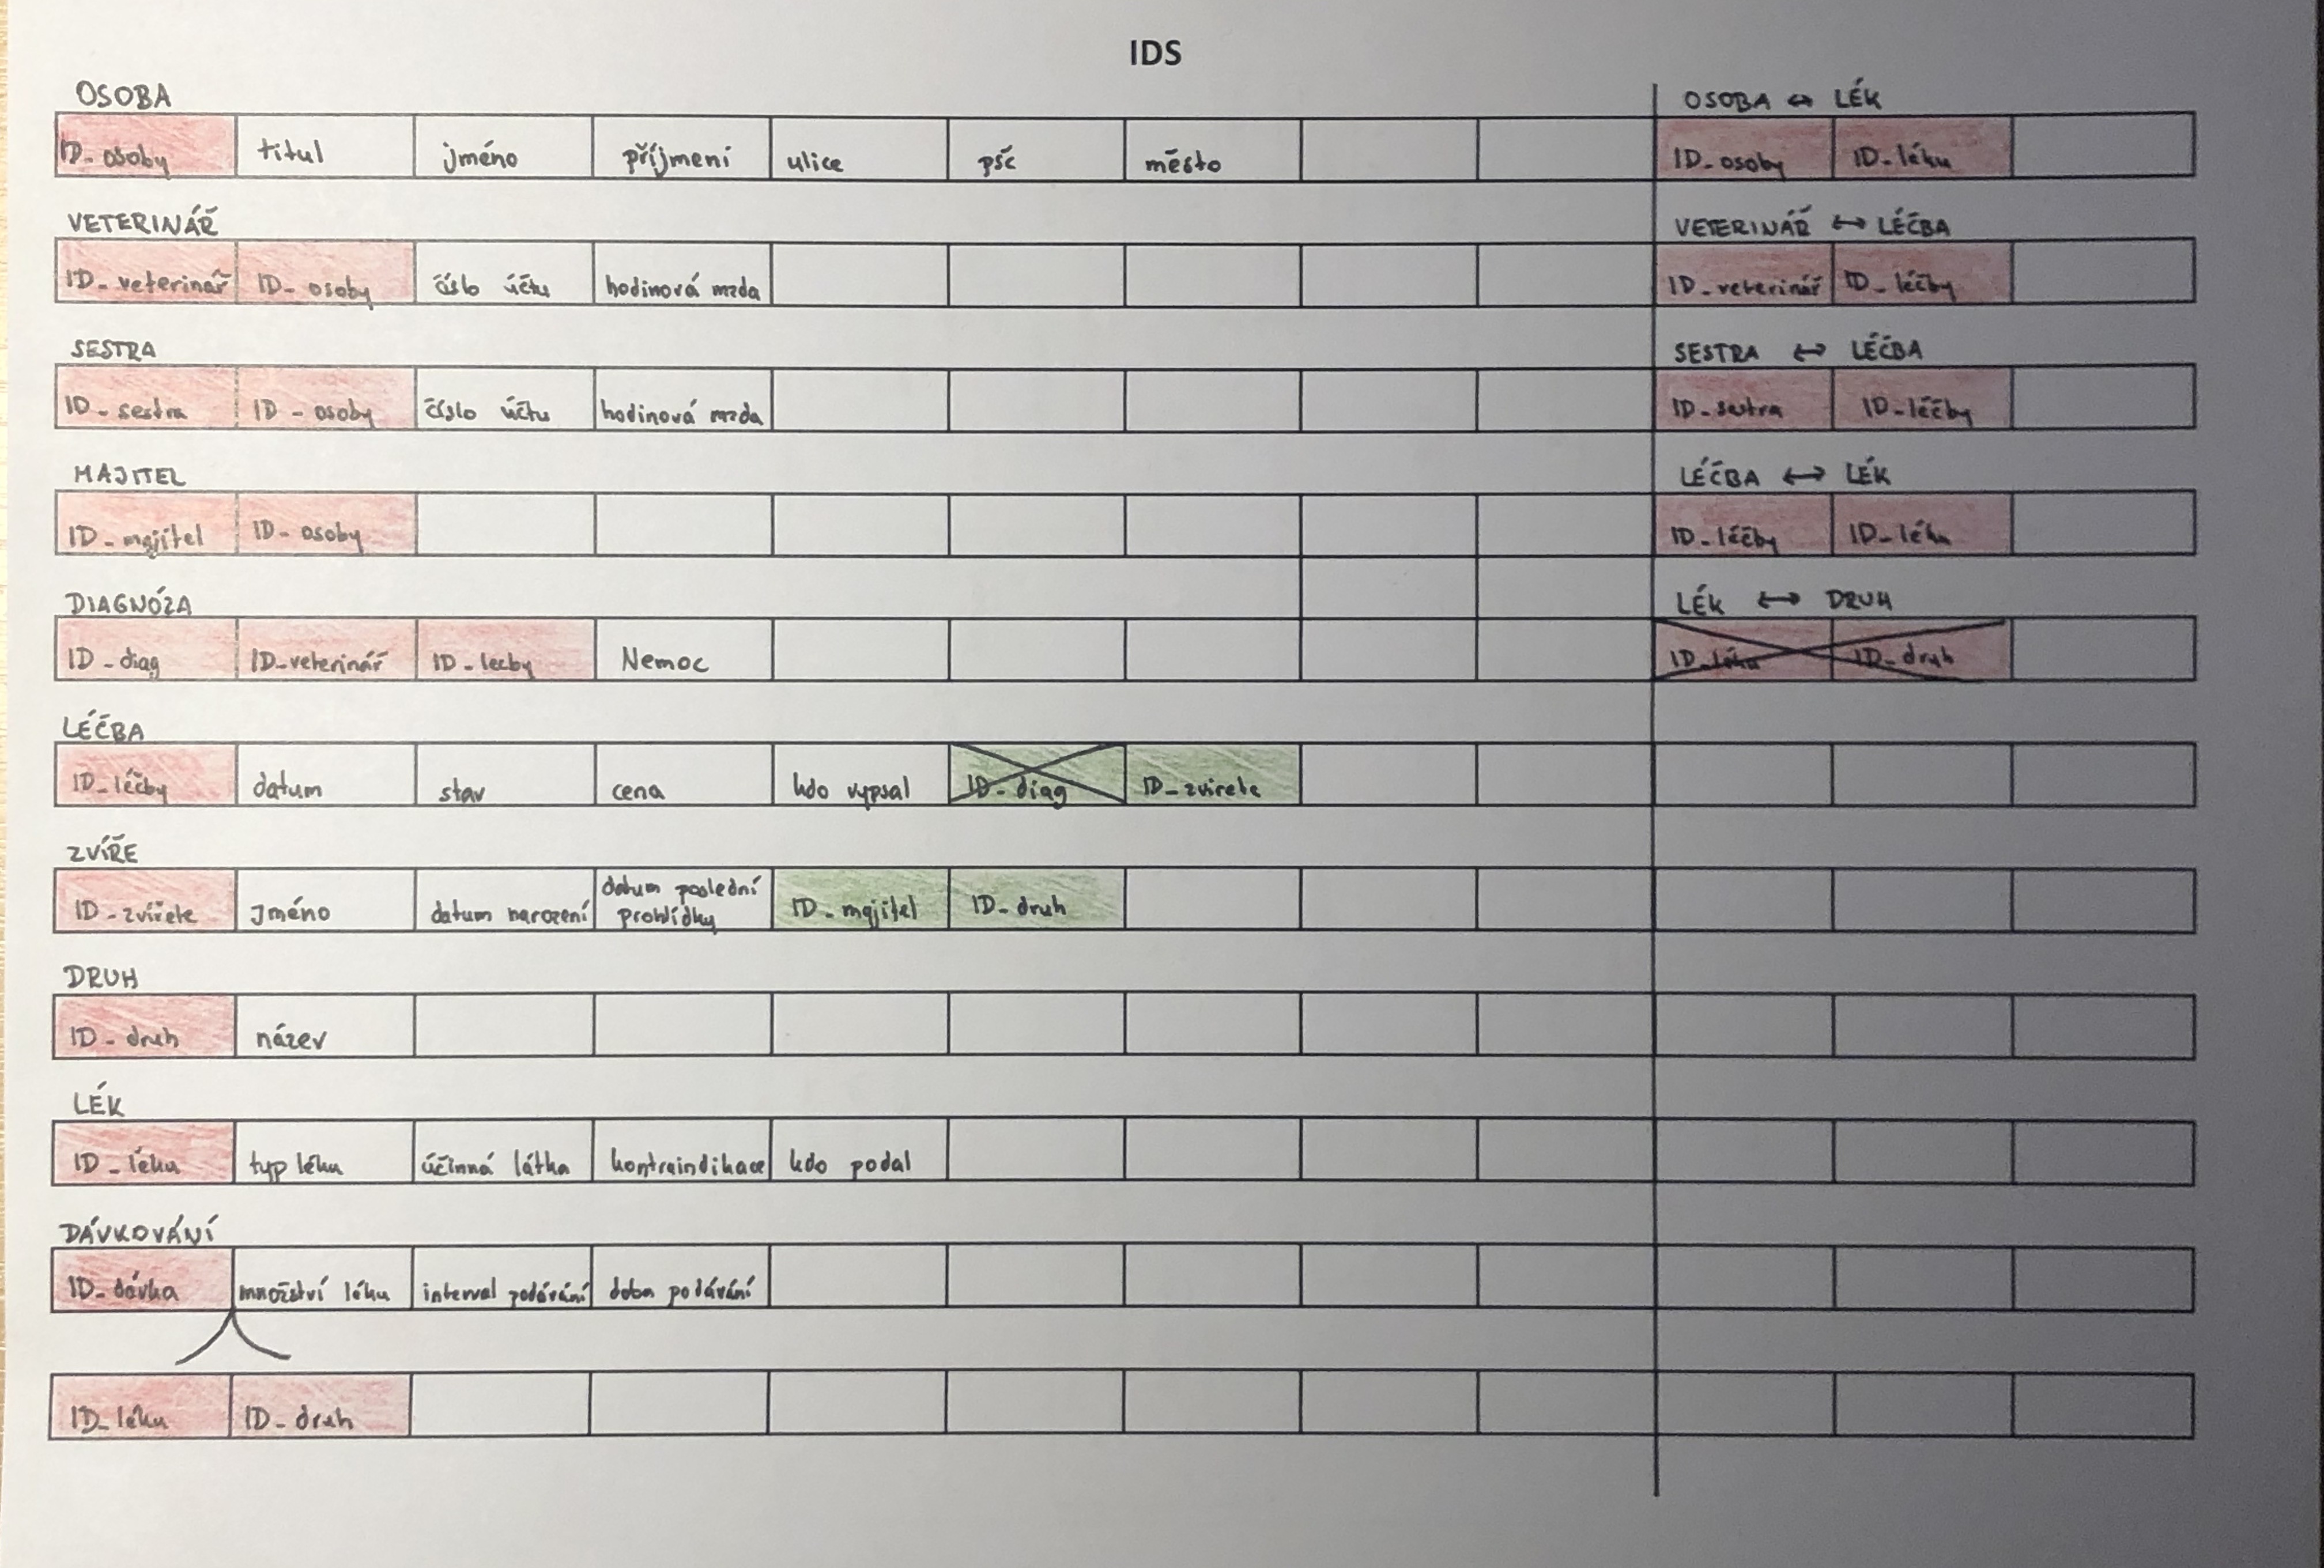 IDS
OSOBA
ID_osoby titul jméno příjmení ulice psč město
VETERINÁŘ
ID_veterinář ID_osoby číslo účtu hodinová mzda
SESTRA
ID_sestra ID_osoby číslo účtu hodinová mzda
MAJITEL
ID_majitel ID_osoby
DIAGNÓZA
ID_diag ID_veterinář ID_lecby Nemoc
LÉČBA
ID_léčby datum stav cena kdo vypsal ID_diag ID_zvirete
ZVÍŘE
ID_zvířete Jméno datum narození datum poslední prohlídky ID_majitel ID_druh
DRUH
ID_druh název
LÉK
ID_léku typ léku účinná látka kontraindikace kdo podal
DÁVKOVÁNÍ
ID_dávka množství léku interval podávání doba podávání
ID_léku ID_druh
OSOBA ↔ LÉK
ID_osoby ID_léku
VETERINÁŘ ↔ LÉČBA
ID_veterinář ID_léčby
SESTRA ↔ LÉČBA
ID_sestra ID_léčby
LÉČBA ↔ LÉK
ID_léčby ID_léku
LÉK ↔ DRUH
ID_léku ID_druh